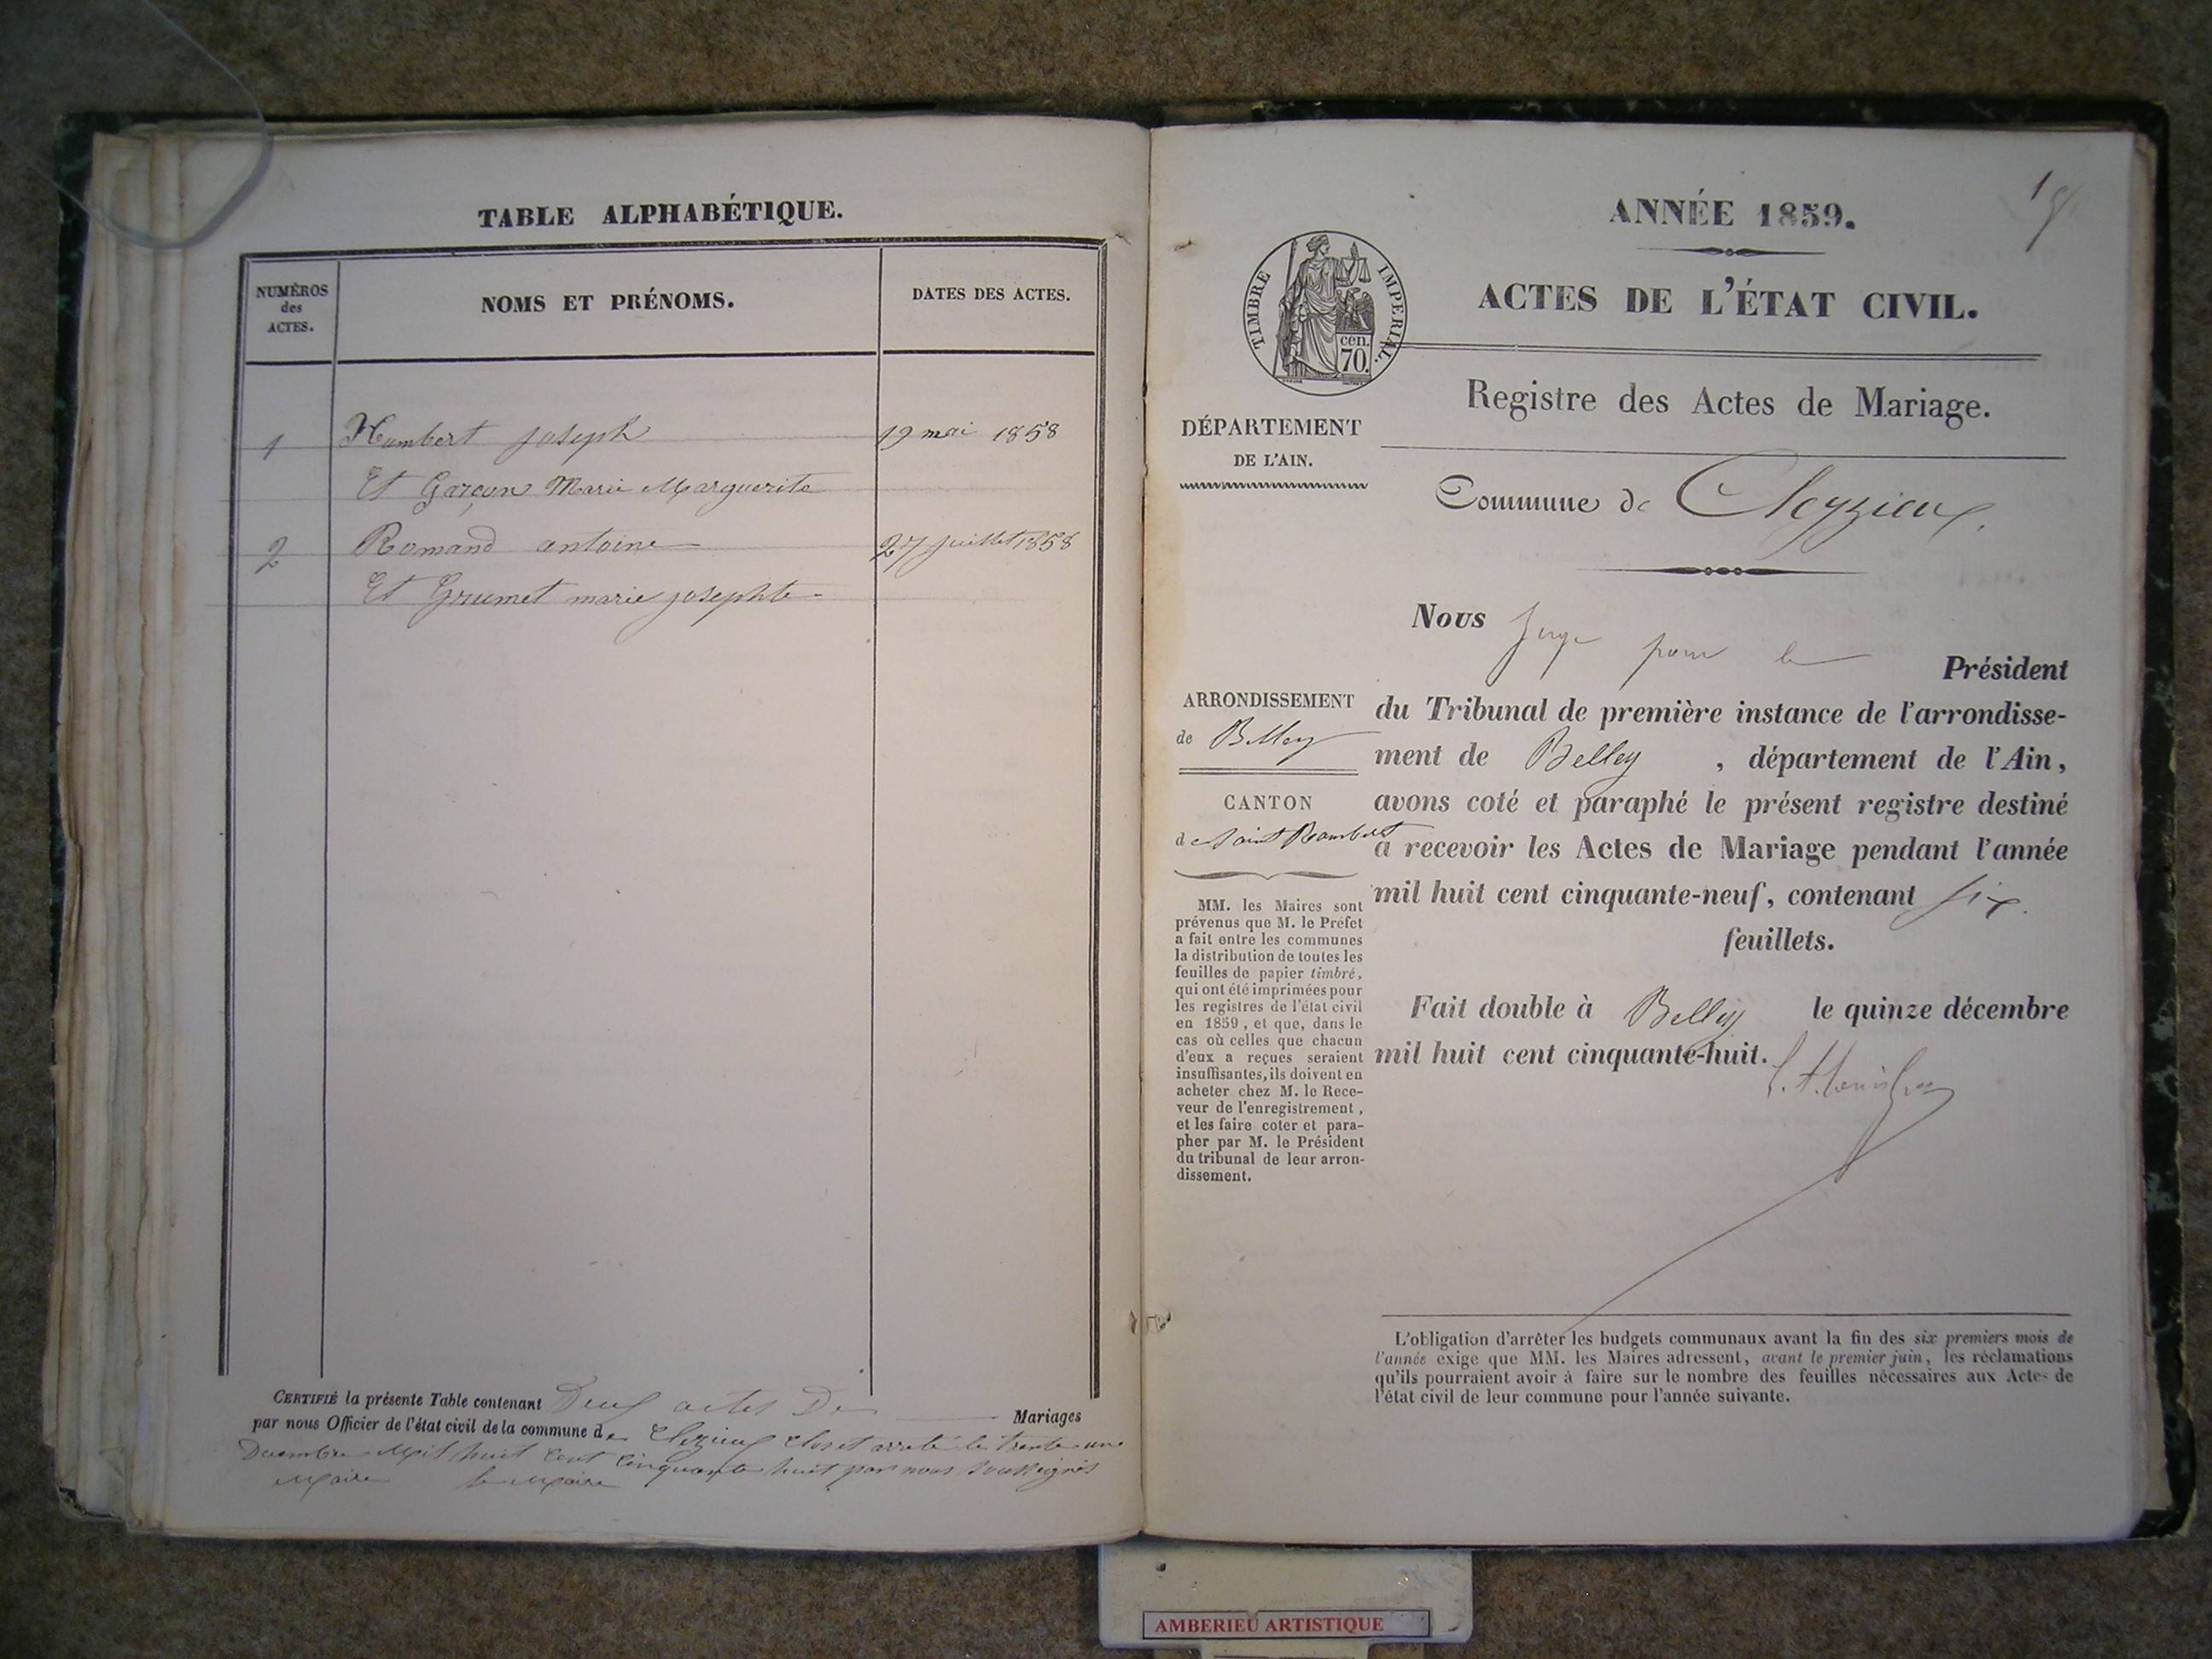 TABLE ALPHABÉTIQUE.
NUMÉROS
des
ACTES.
NOMS ET PRÉNOMS.
DATES DES ACTES.
1 Humbert joseph 19 mai 1858
Et Garçon Marie Marguerite
2 Romand antoine 27 juillet 1858
Et Grumet marie josephte
CERTIFIÉ la présente Table contenant Deux actes De Mariages
par nous Officier de l'état civil de la commune de Cleyzieu Clos et arrêté le trente une
Decembre Mil huit Cent Cinquante huit par nous soussignés
Maire le Maire
1
ANNÉE 1859.
TIMBRE IMPÉRIAL.
cen.
70.
ACTES DE L'ÉTAT CIVIL.
Registre des Actes de Mariage.
DÉPARTEMENT
DE L'AIN.
Commune de Cleyzieu.
Nous Juge pour le Président
du Tribunal de première instance de l'arrondisse-
ment de Belley , département de l'Ain,
avons coté et paraphé le présent registre destiné
à recevoir les Actes de Mariage pendant l'année
mil huit cent cinquante-neuf, contenant six
feuillets.
Fait double à Belley le quinze décembre
mil huit cent cinquante-huit.
ARRONDISSEMENT
de Belley
CANTON
de Saint Rambert
MM. les Maires sont
prévenus que M. le Préfet
a fait entre les communes
la distribution de toutes les
feuilles de papier timbré,
qui ont été imprimées pour
les registres de l'état civil
en 1859, et que, dans le
cas où celles que chacun
d'eux a reçues seraient
insuffisantes, ils doivent en
acheter chez M. le Rece-
veur de l'enregistrement,
et les faire coter et para-
pher par M. le Président
du tribunal de leur arron-
dissement.
L'obligation d'arrêter les budgets communaux avant la fin des six premiers mois de
l'année exige que MM. les Maires adressent, avant le premier juin, les réclamations
qu'ils pourraient avoir à faire sur le nombre des feuilles nécessaires aux Actes de
l'état civil de leur commune pour l'année suivante.
AMBERIEU ARTISTIQUE